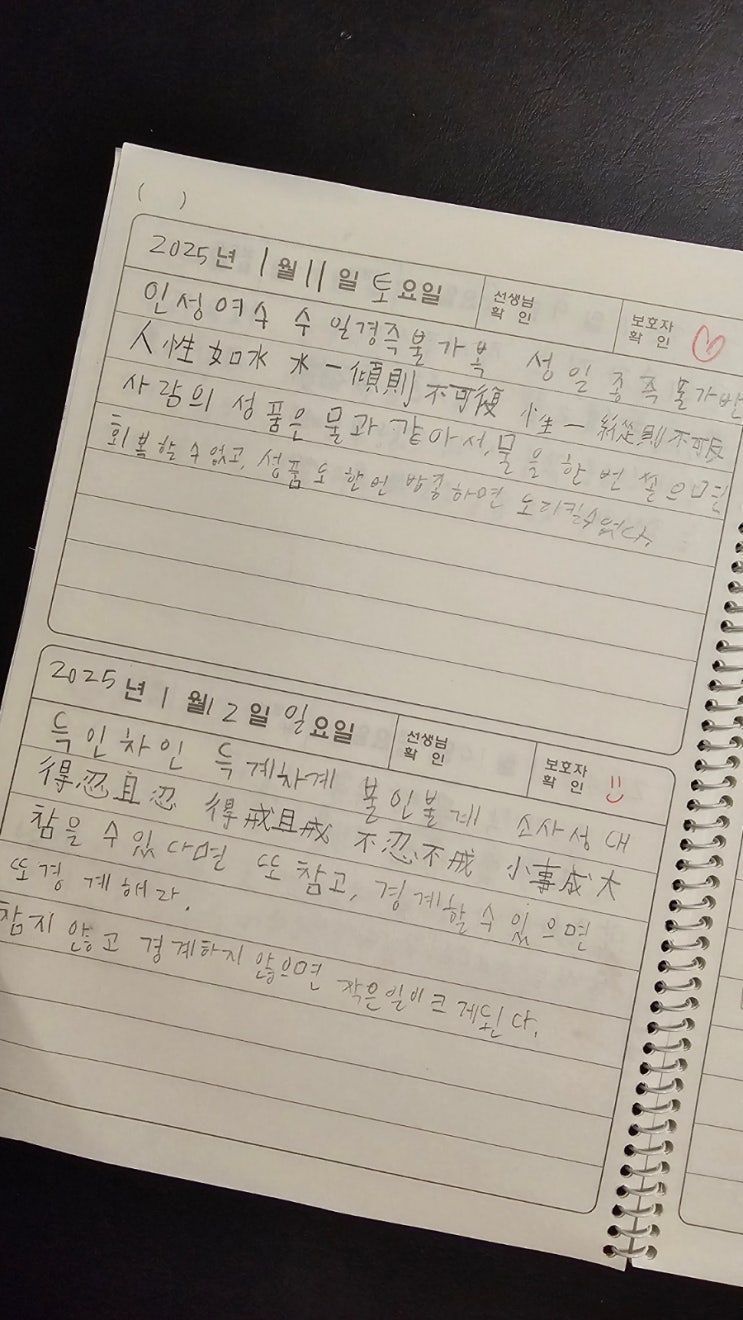 ( )
2025년 1월 11일 토요일 선생님 확인 보호자 확인
인성여수 수일경즉불가복 성일종즉불가반
人性如水 水一傾則不可復 性一縱則不可反
사람의 성품은 물과 같아서, 물을 한번 쏟으면
회복할 수 없고, 성품도 한번 방종하면 도리킬수없다.
2025년 1월 12일 일요일 선생님 확인 보호자 확인
득인차인 득계차계 불인불계 소사성대
得忍且忍 得戒且戒 不忍不戒 小事成大
참을 수 있다면 또 참고, 경계할 수 있으면
또경계해라.
참지 않고 경계하지 않으면 작은일이크게된다.